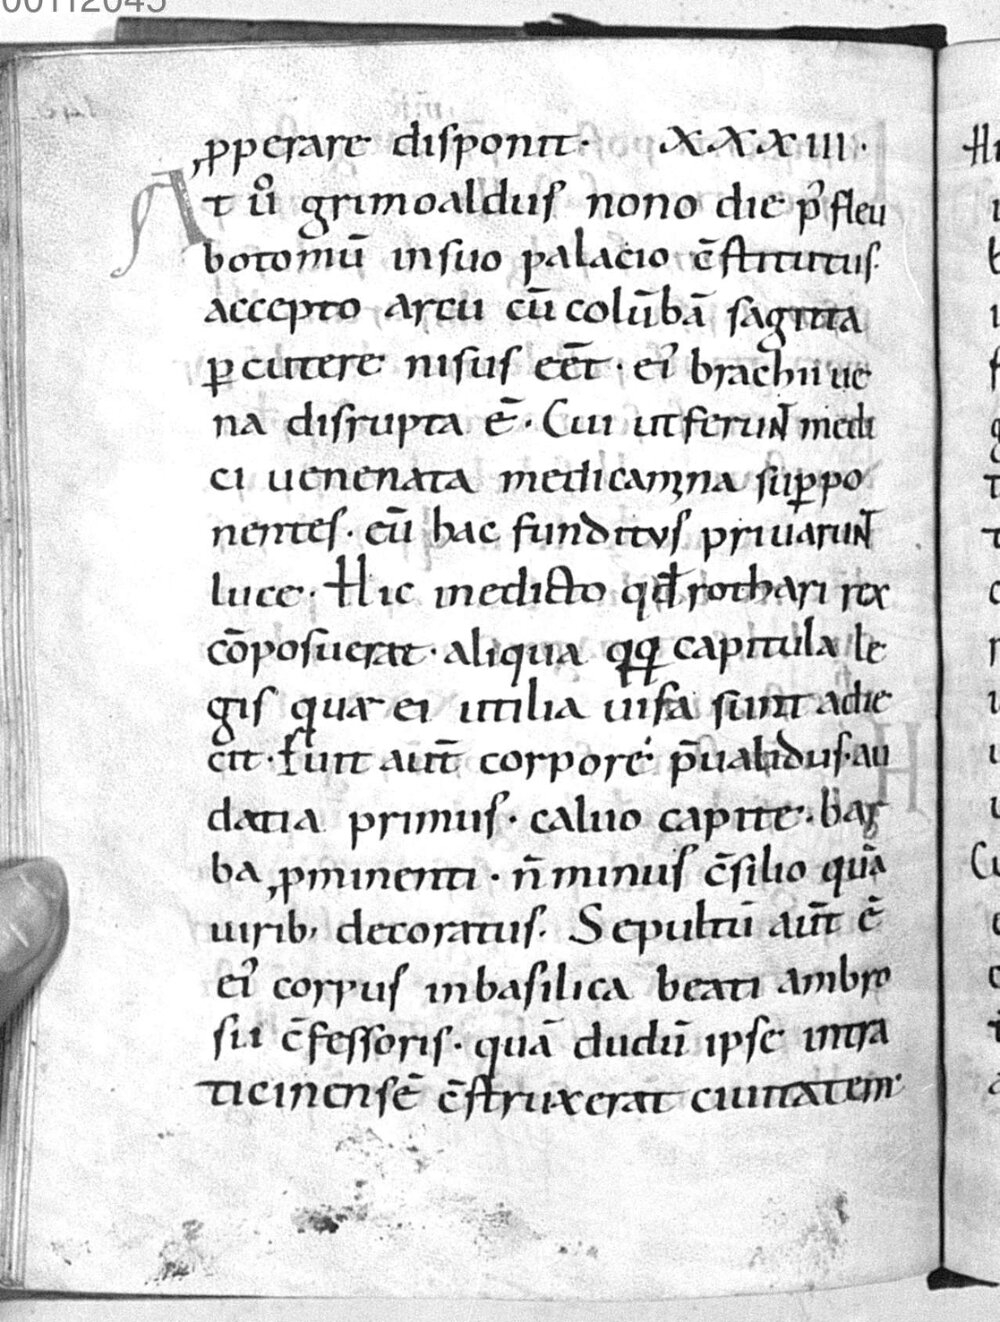 ꝓperare disponit. XXXIII.
At ů grimoaldus nono die pꝰ fleu
botomū in suo palacio c̄stitutus.
accepto arcu cū colūbā sagitta
ꝑcutere nisus eēt. eiꝰ brachii ue
na disrupta ē. Cui ut ferunt medi
ci uenenata medicamina suppo
nentes. eū hac funditus priuarunt
luce. Hic in edicto qđ rothari rex
cōposuerat. aliqua qꝗ capitula le
gis quae ei utilia uisa sunt adie
cit. Fuit aut̄ corpore p̄ualidus. au
datia primus. caluo capite. bar
ba ꝓminenti. n̄ minus c̄silio quā
uirib; decoratus. Sepultū aut̄ ē
eiꝰ corpus in basilica beati ambro
sii c̄fessoris. quā dudū ipse intra
ticinensē c̄struxerat ciuitatem.